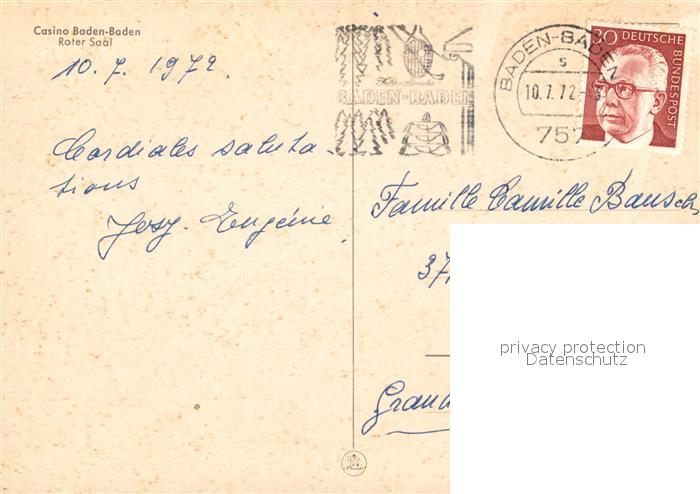 Casino Baden-Baden
Roter Saal
10.7.1972.
Cordiales saluta-
tions
Josy. Eugénie
BADEN-BADEN
BADEN-BADEN
s
10.7.72.
757
30 DEUTSCHE
BUNDESPOST
Famille Camille Bausch
37,
Grand
privacy protection
Datenschutz